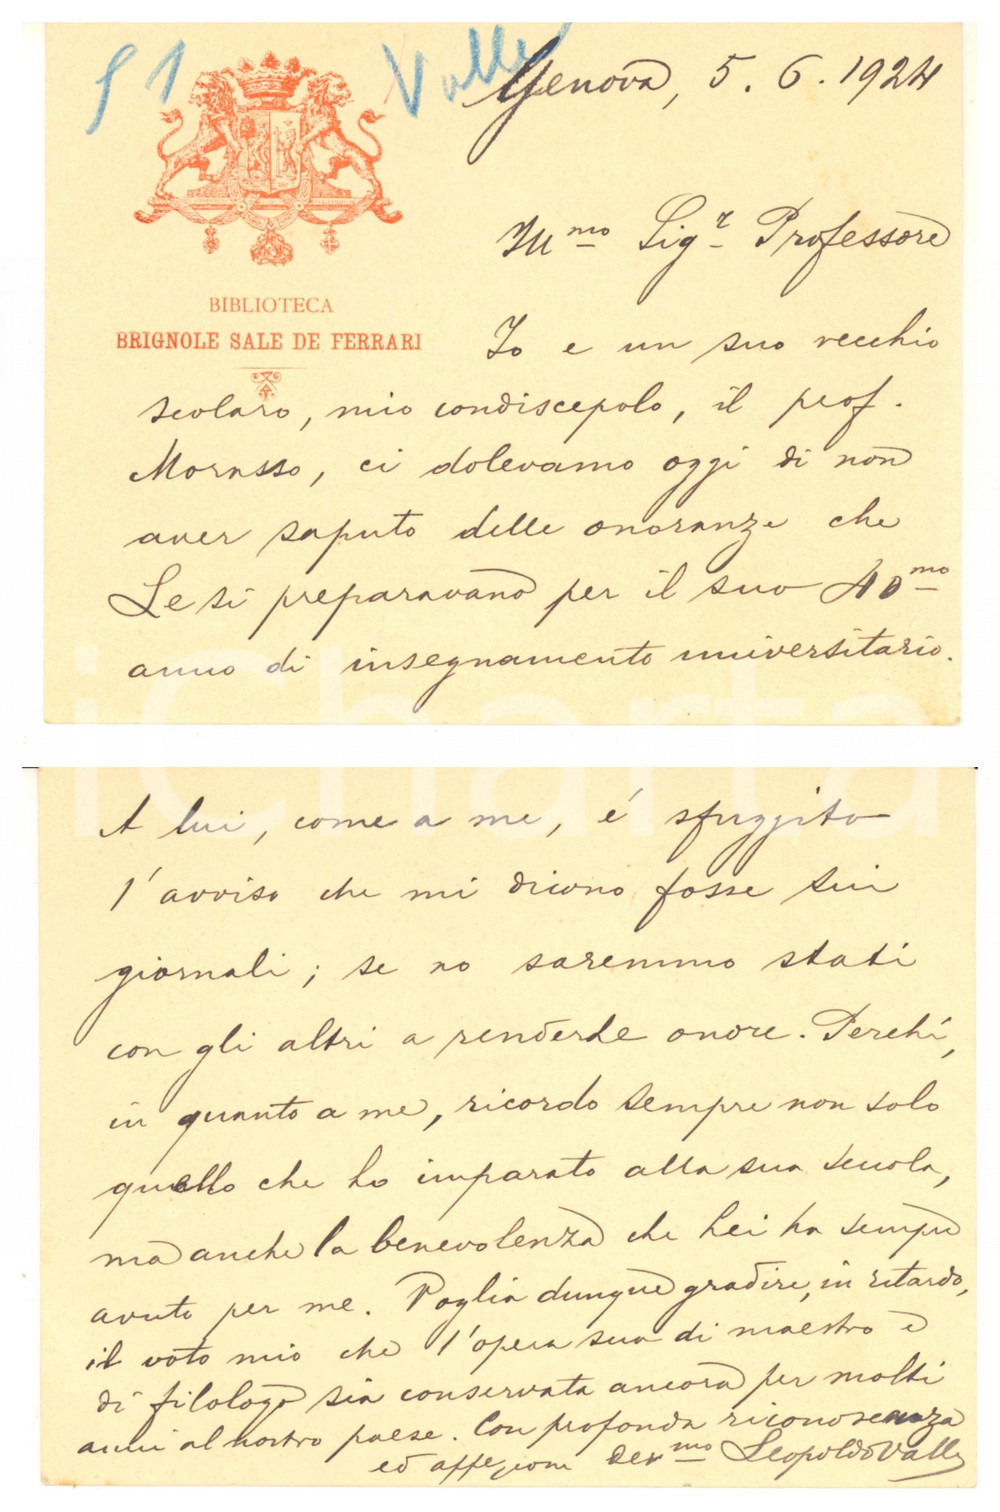 S 1 Valle
Genova, 5.6.1924
Ill.mo Sig.r Professore
BIBLIOTECA
BRIGNOLE SALE DE FERRARI
Io e un suo vecchio
scolaro, mio condiscepolo, il prof.
Morasso, ci dolevamo oggi di non
aver saputo delle onoranze che
Le si preparavano per il suo 40mo
anno di insegnamento universitario.
A lui, come a me, é sfuggito
l'avviso che mi dicono fosse sui
giornali; se no saremmo stati
con gli altri a renderLe onore. Perché,
in quanto a me, ricordo sempre non solo
quello che ho imparato alla sua scuola,
ma anche la benevolenza che Lei ha sempre
avuto per me. Voglia dunque gradire, in ritardo,
il voto mio che l'opera sua di maestro e
di filologo sia conservata ancora per molti
anni al nostro paese. Con profonda riconoscenza
ed affezione dev.mo Leopoldo Valle
iCharta